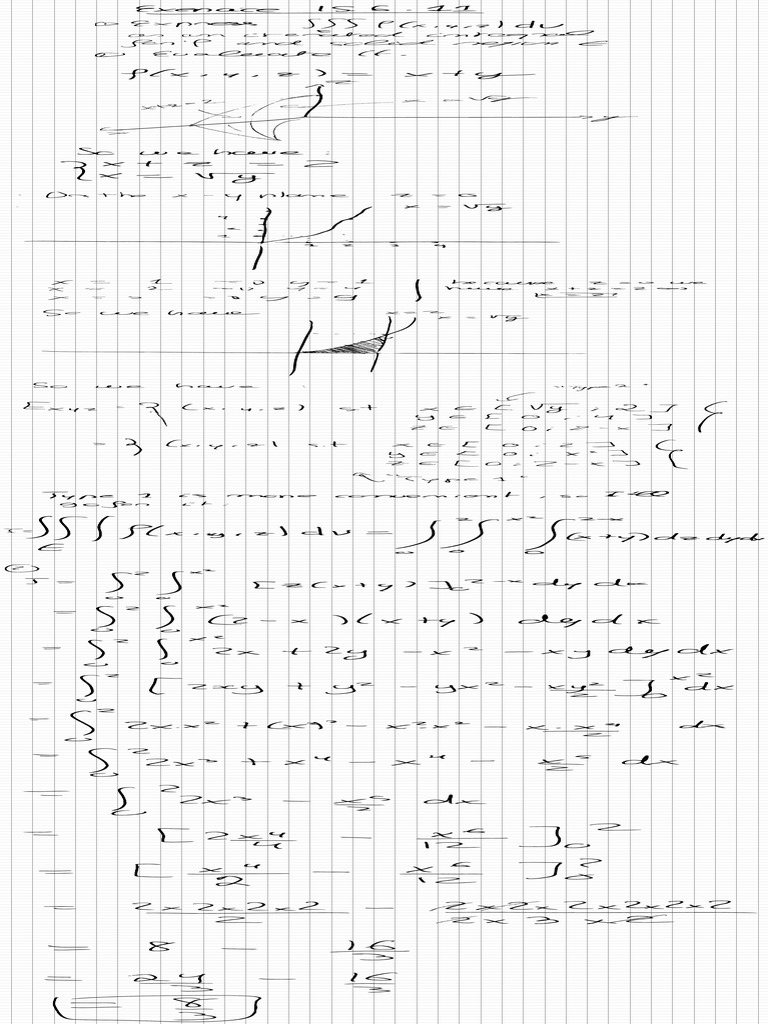 Exercice 15.6.11
① Express ∫∫∫ f(x,y,z) dV
as an iterated integral
for f and solid region E
② Evaluate it.
f(x,y,z) = x+y
z
x+z=2
x = √y
y
So we have :
{ x + z = 2
x = √y
On the x-y plane z = 0
x = √y
x = 1 => y = 1
x = 2 => y = 4
x = 3 => y = 9
because z = 0 we
have x+z=2 =>
x=2
So we have
x=2
x = √y
So we have :
"type 2"
Exyz = { (x,y,z) s.t x ∈ [√y, 2]
y ∈ [0, 4]
z ∈ [0, 2-x] }
= { (x,y,z) s.t x ∈ [0, 2]
y ∈ [0, x²]
z ∈ [0, 2-x] }
"Type 1"
Type 1 is more convenient, so I'll
go for it.
I = ∫∫∫ f(x,y,z) dV = ∫₀² ∫₀^x² ∫₀^2-x (x+y) dz dy dx
E
②
I = ∫₀² ∫₀^x² [z(x+y)]₀^2-x dy dx
= ∫₀² ∫₀^x² (2-x)(x+y) dy dx
= ∫₀² ∫₀^x² 2x + 2y - x² - xy dy dx
= ∫₀² [2xy + y² - yx² - xy²/2]₀^x² dx
= ∫₀² 2x·x² + (x²)² - x²·x² - x·x⁴/2 dx
= ∫₀² 2x³ + x⁴ - x⁴ - x⁵/2 dx
= ∫₀² 2x³ - x⁵/2 dx
= [2x⁴/4 - x⁶/12]₀²
= [x⁴/2 - x⁶/12]₀²
= 2x2x2x2/2 - 2x2x2x2x2x2/2x3x2
= 8 - 16/3
= 24/3 - 16/3
= 8/3